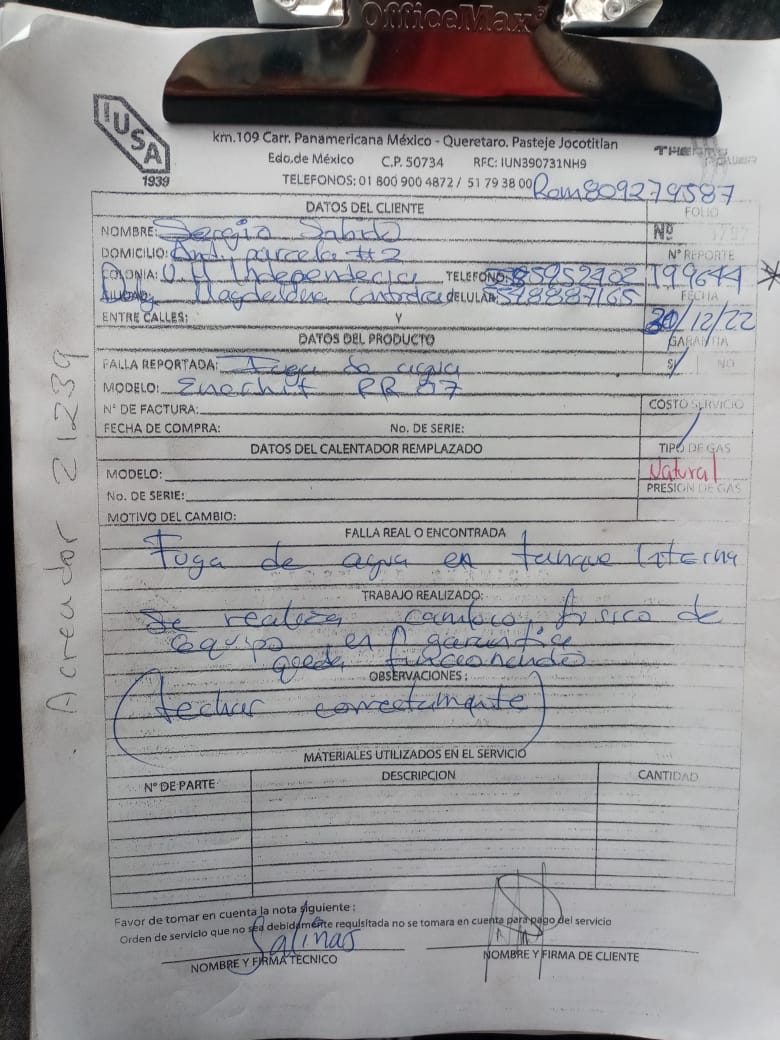 OfficeMax
IUSA
1939
km.109 Carr. Panamericana México - Queretaro. Pasteje Jocotitlan
Edo.de México C.P. 50734 RFC: IUN390731NH9
TELEFONOS: 01 800 900 4872 / 51 79 38 00
DATOS DEL CLIENTE
FOLIO
NOMBRE: Sergio Salido
Nº
DOMICILIO: And. parcela #2
N° REPORTE
COLONIA: U. H Independecia TELEFONO: 199644 *
Magdalena CELULAR:
FECHA
ENTRE CALLES: Y
30/12/22
DATOS DEL PRODUCTO
GARANTIA
FALLA REPORTADA: Fuga de agua
SI / NO
MODELO:
N° DE FACTURA:
COSTO SERVICIO
FECHA DE COMPRA: No. DE SERIE:
DATOS DEL CALENTADOR REMPLAZADO
TIPO DE GAS
MODELO:
Natural
No. DE SERIE:
PRESION DE GAS
MOTIVO DEL CAMBIO:
FALLA REAL O ENCONTRADA
Fuga de agua en tanque Interna
TRABAJO REALIZADO:
Se realiza cambio fisico de
equipo en garantia
queda funcionando
OBSERVACIONES :
(fechar correctamente)
MATERIALES UTILIZADOS EN EL SERVICIO
N° DE PARTE DESCRIPCION CANTIDAD
Favor de tomar en cuenta la nota siguiente :
Orden de servicio que no sea debidamente requisitada no se tomara en cuenta para pago del servicio
Salinas
NOMBRE Y FIRMA TECNICO NOMBRE Y FIRMA DE CLIENTE
Acreador 21239